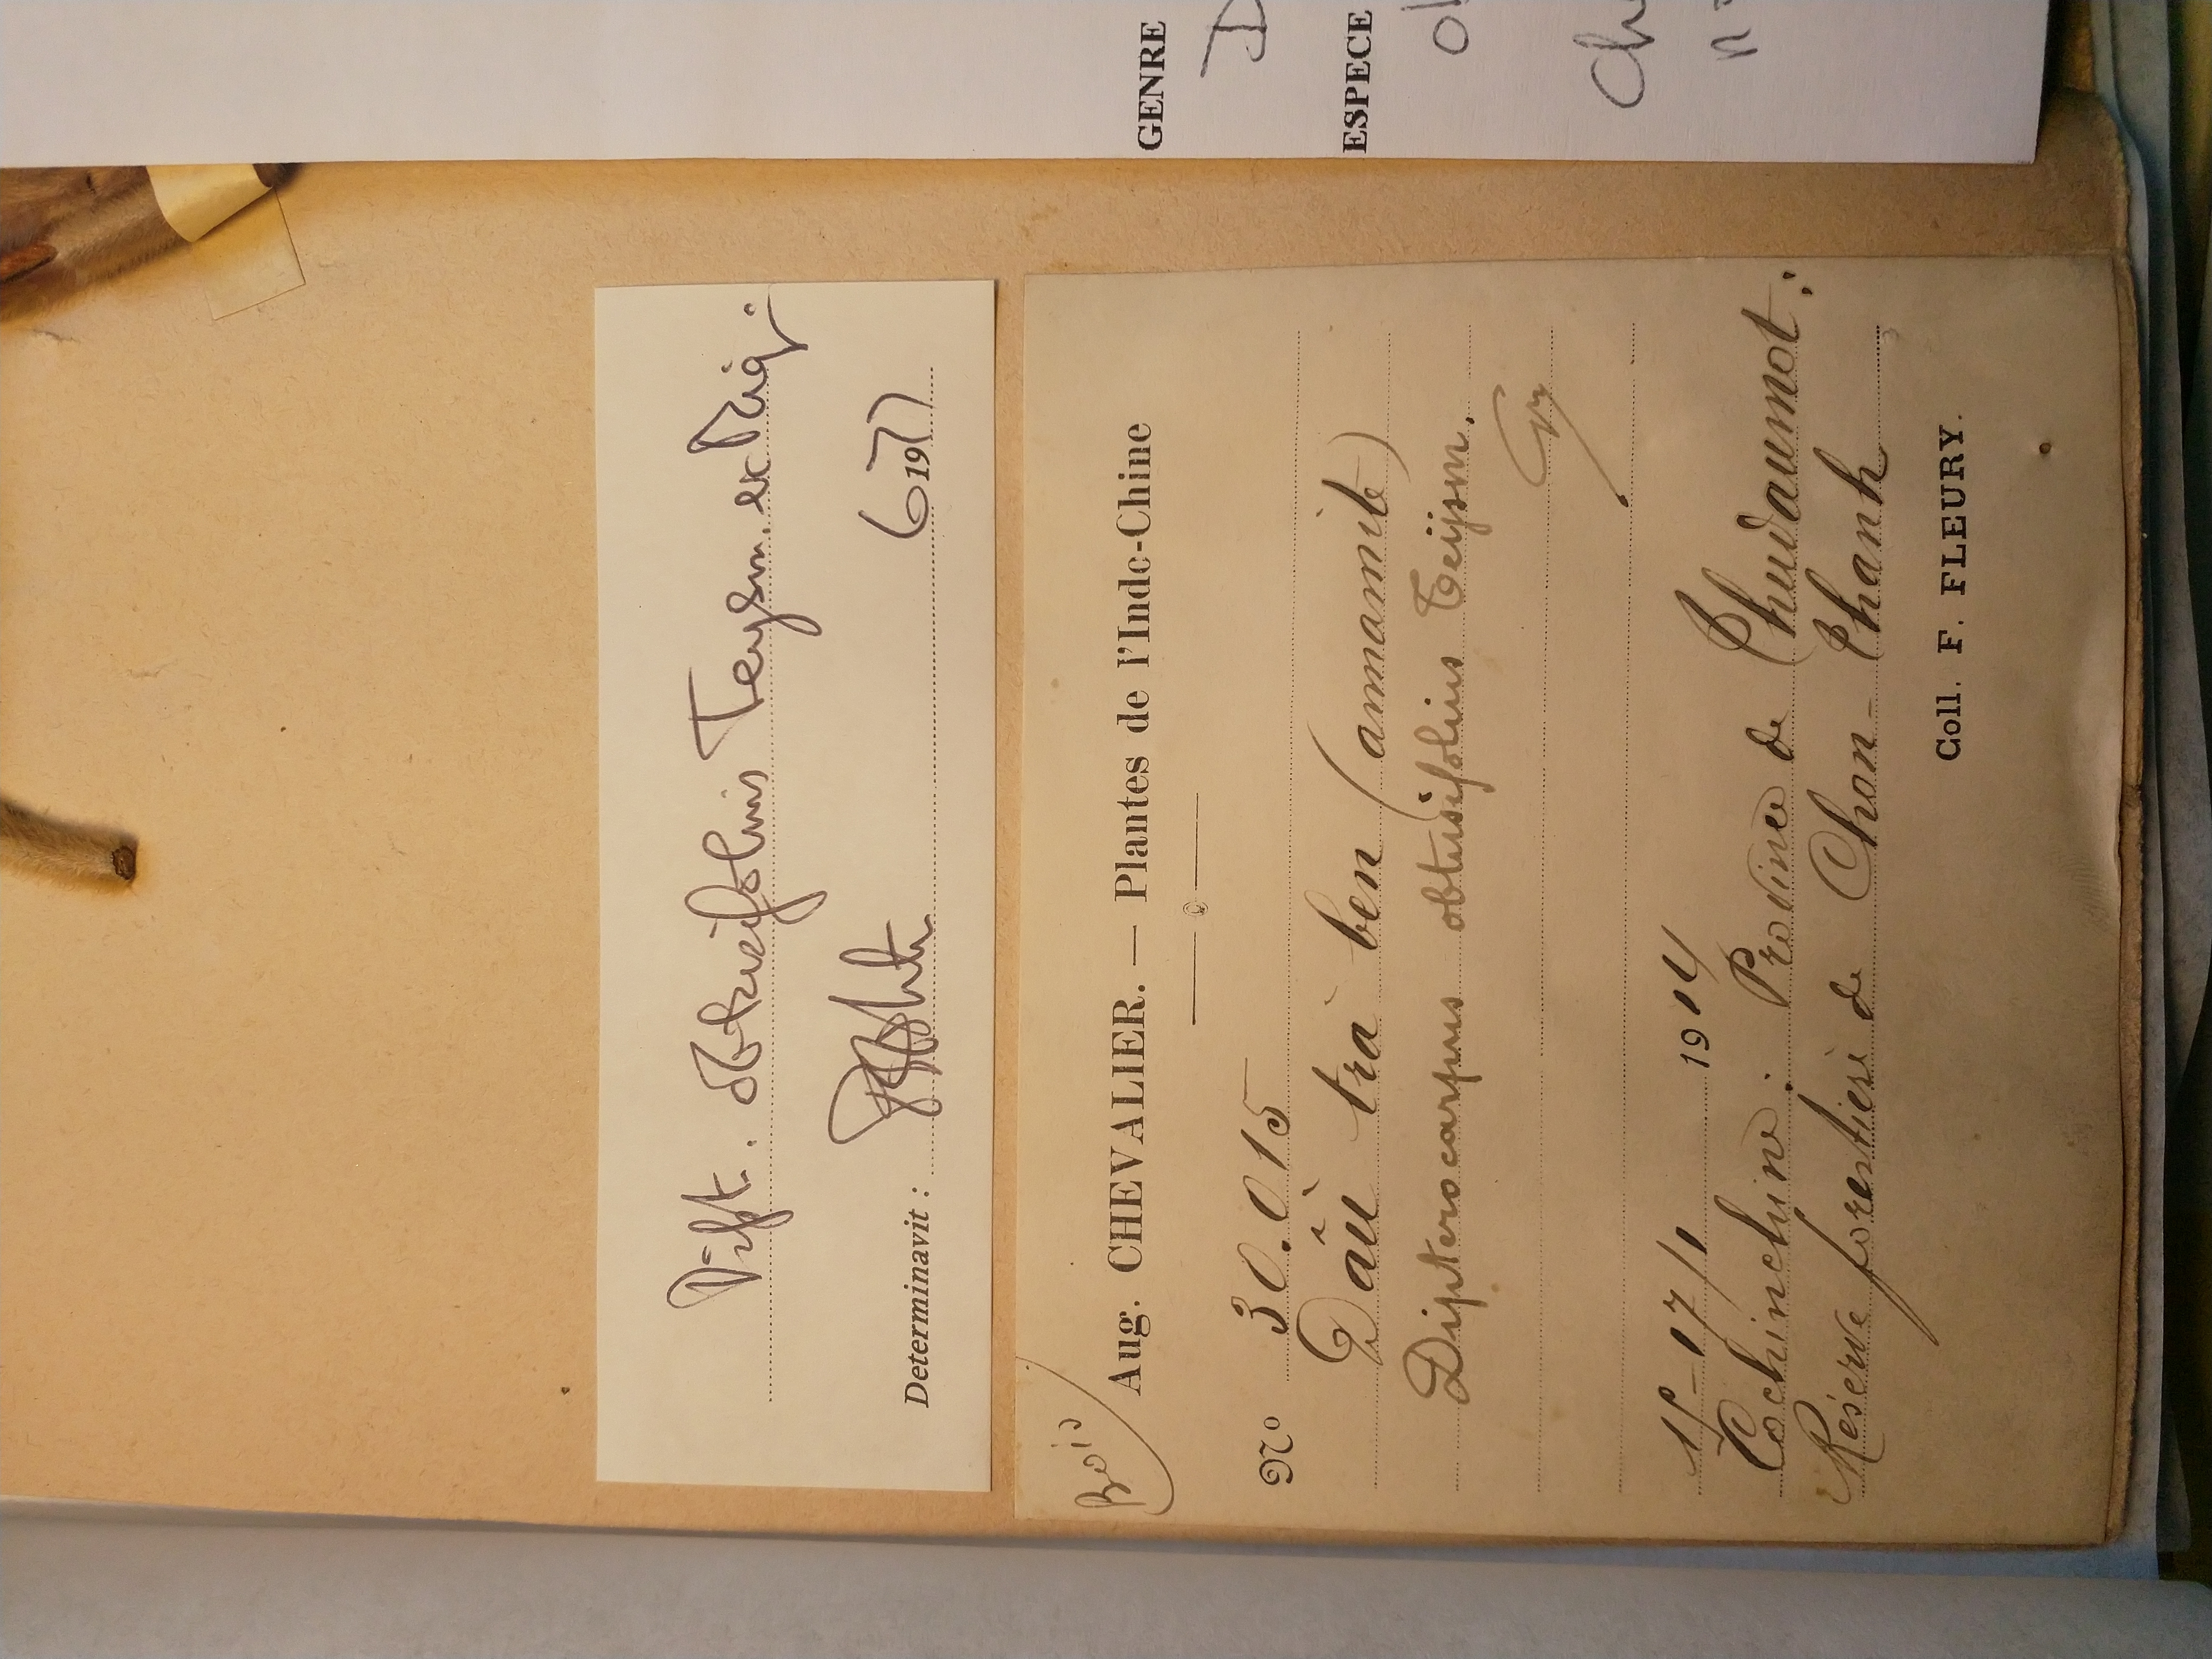 GENRE D
ESPECE
Dipt. obtusifolius Teysm. ex Miq.
Determinavit : 6 1977
Bois
Aug. CHEVALIER. — Plantes de l'Indo-Chine
No 30.015
Dâù trà ben (annamite)
Dipterocarpus obtusifolius Teijsm.
15-17/1 1914
Cochinchine : Province de Thudaumot :
Réserve forestière de Chon-Thanh
Coll. F. FLEURY.